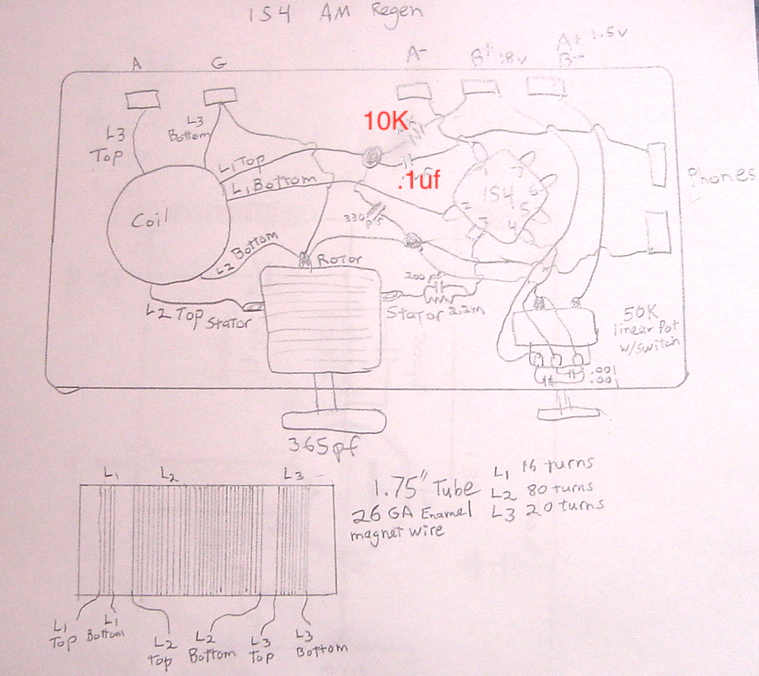 1S4 AM Regen
A G A- B+ 18v A+ 1.5v
B-
10K
L3
Top
L3
Bottom
L1 Top
L1 Bottom
.1uf
Phones
Coil
1S4
1 2 3 4 5 6 7
330
pf
L2 Bottom
Rotor
L2 Top
Stator
200 pf
Stator 2.2m
50K
linear Pot
w/switch
.001
.001
365pf
L1 L2 L3
1.75" Tube
26 GA Enamel
magnet wire
L1 16 turns
L2 80 turns
L3 20 turns
L1
Top
L1
Bottom
L2
Top
L2
Bottom
L3
Top
L3
Bottom